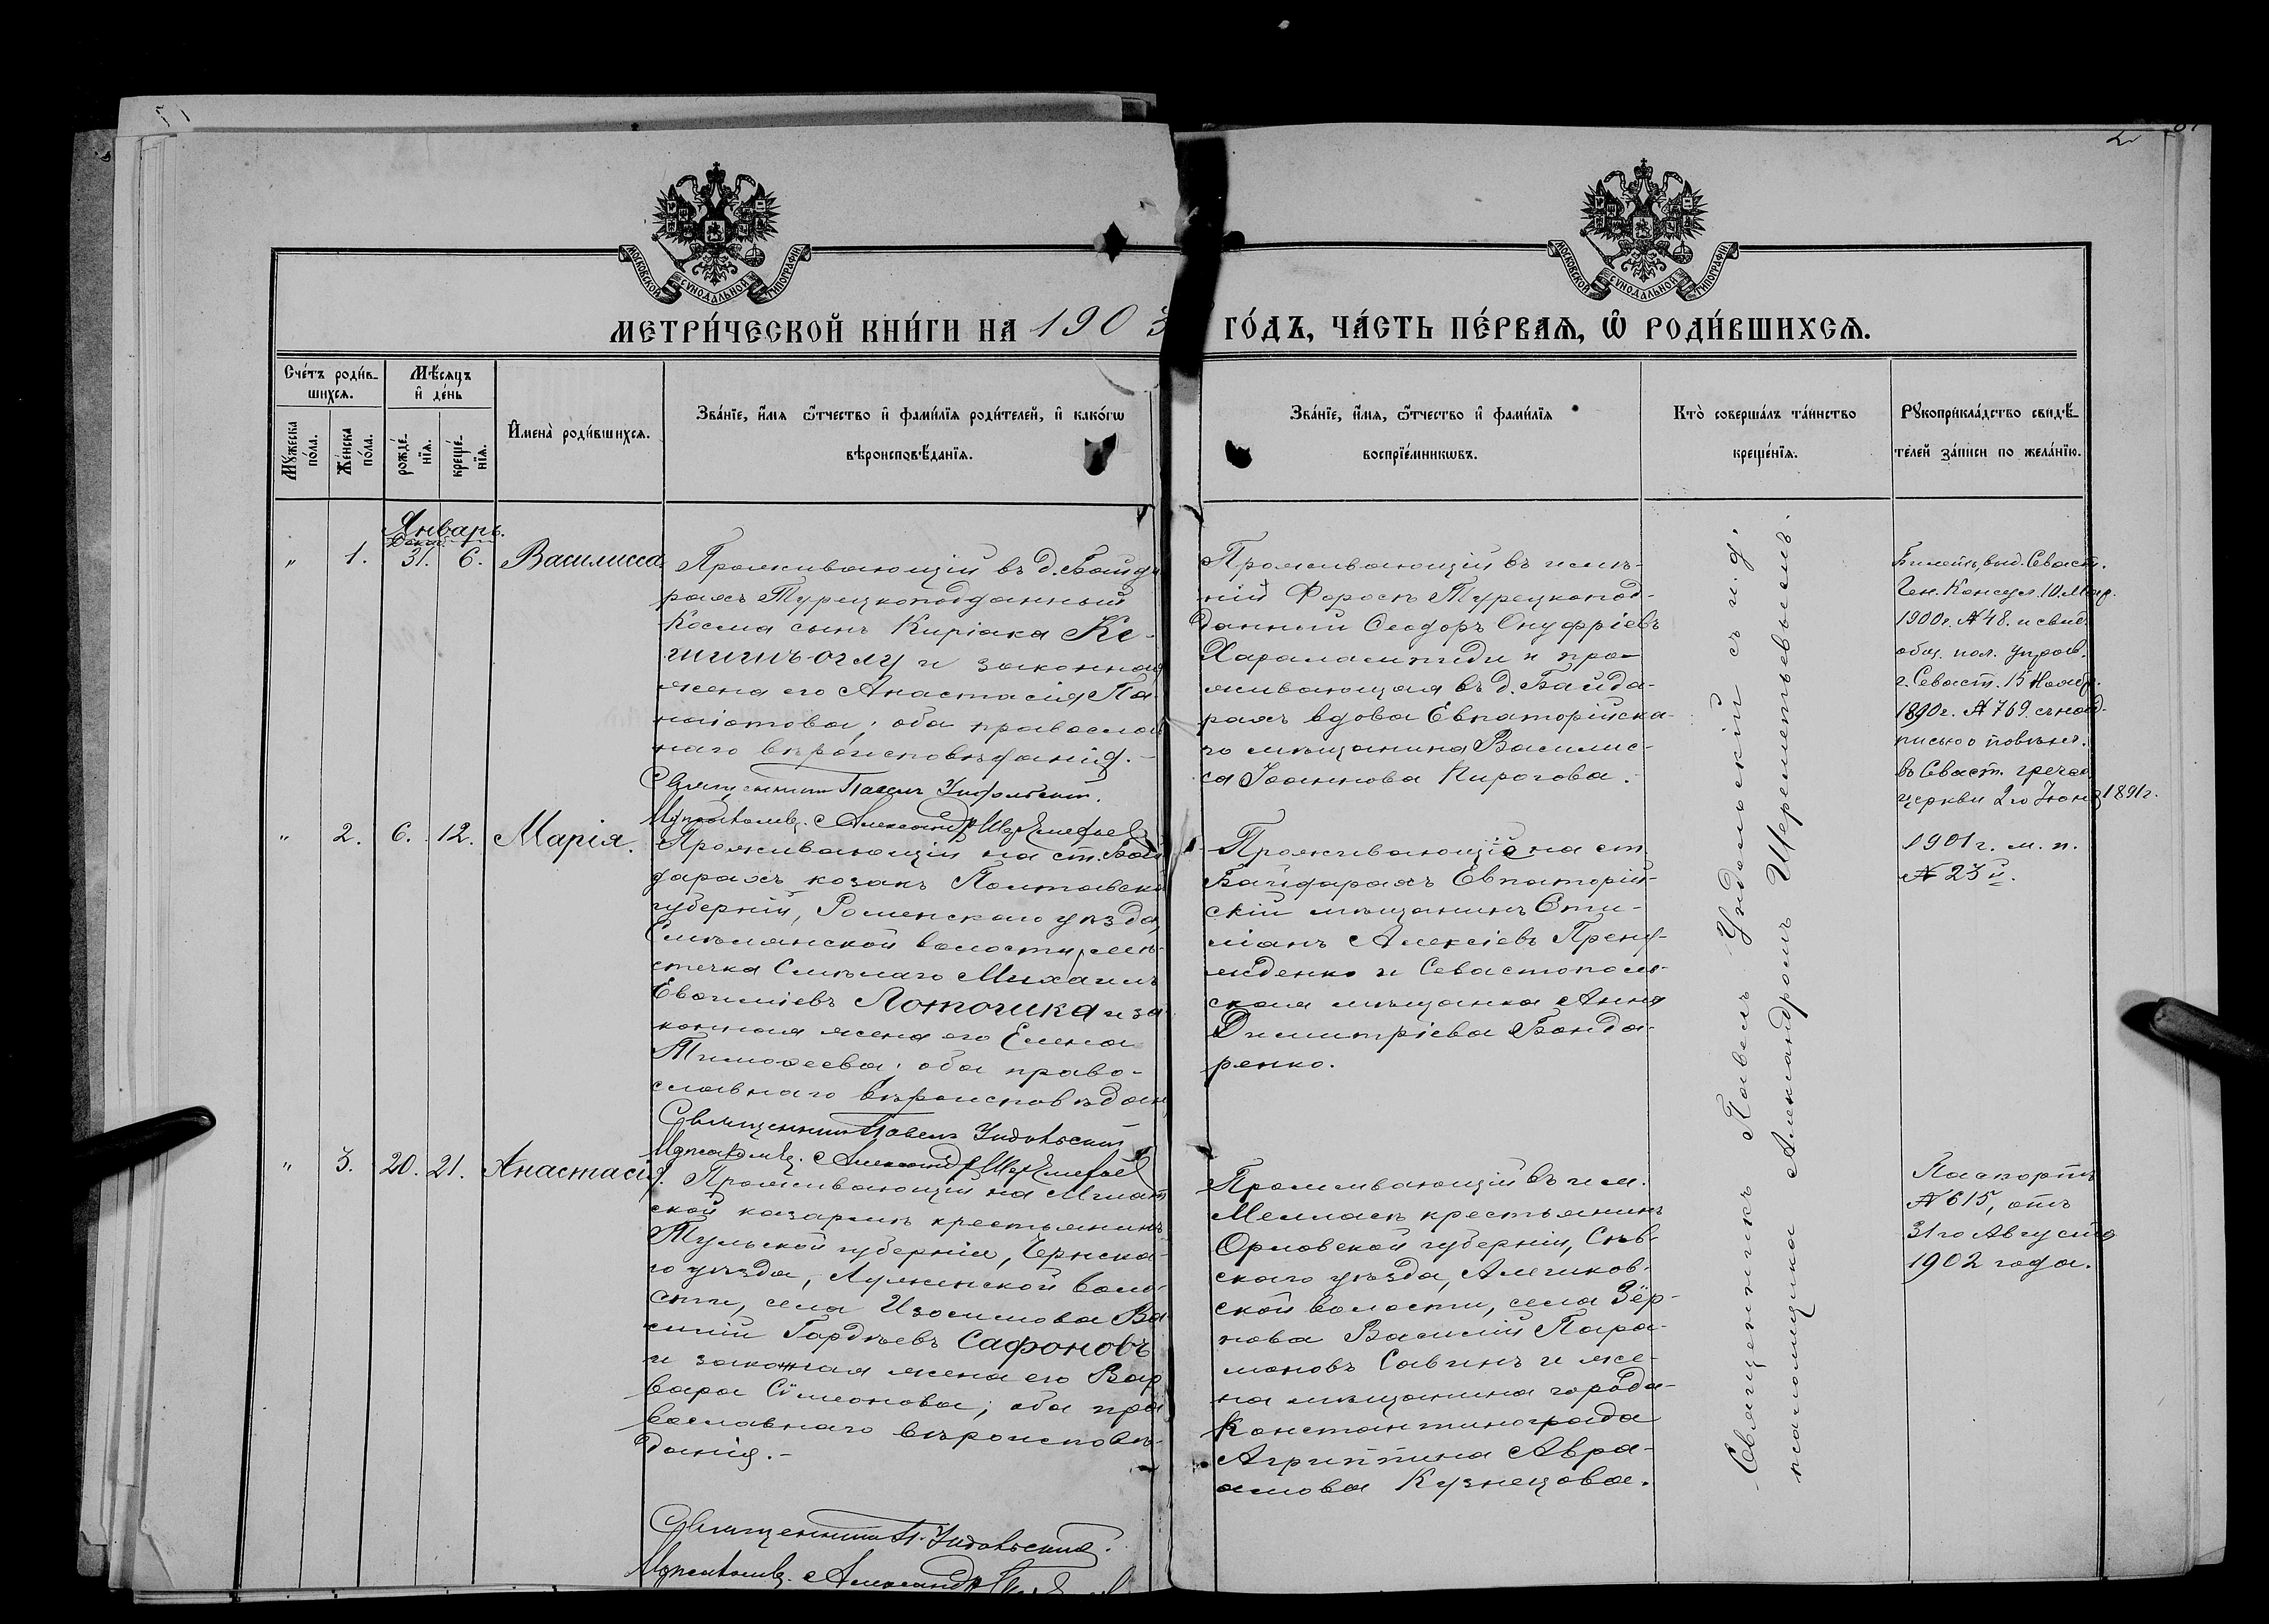 2
МОСКОВСКОЙ СУНОДАЛЬНОЙ ТИПОГРАФІИ
МОСКОВСКОЙ СУНОДАЛЬНОЙ ТИПОГРАФІИ
МЕТРИ́ЧЕСКОЙ КНИ́ГИ НА 1903 ГО́ДЪ, ЧА́СТЬ ПЕ́РВАѦ, Ѡ҆ РОДИ́ВШИХСѦ.
Сче́тъ роди́в-
шихсѧ.
Мꙋ́жеска
по́ла.
Же́нска
по́ла.
Мѣ́сѧцъ
и҆ де́нь
рожде́-
нїѧ.
креще́-
нїѧ.
И҆мена̀ роди́вшихсѧ.
Зва́нїе, и҆́мѧ ѻ҆́тчество и҆ фами́лїѧ роди́телей, и҆ како́гѡ
вѣроисповѣ́данїѧ.
Зва́нїе, и҆́мѧ, ѻ҆́тчество и҆ фами́лїѧ
воспрїе́мникѡвъ.
Кто̀ соверша́лъ та́инство
креще́нїѧ.
Рꙋкоприкла́дство свидѣ́-
телей за́писи по жела́нїю.
Январь.
" 1. 31. 6. Василисса
Проживающій въ д. Байда
рахъ Турецкоподданный
Косма сынъ Киріака Ке-
шишъ-оглу и законная
жена его Анастасія Па-
наіотова; оба православ
наго вѣроисповѣданія.-
Священникъ Павелъ Ундольскій.
Псаломщ. Александръ Шереметьев
Проживающій въ имѣ-
ніи Форосъ Турецкопод-
данный Ѳеодоръ Онуфріевъ
Харалампиди и про-
живающая въ д. Байда-
рахъ вдова Евпаторійска-
го мѣщанина Василис-
са Іоаннова Пирогова.-
Билетъ, выд. Севаст.
Ген. Консул. 10 Мар.
1900г. № 48. и свид.
общ. пол. управ.
г. Севаст. 15 Нояб.
1890г. № 769. съ над-
писью о повѣнч.
въ Севаст. греческ.
церкви 2го Іюня 1891г.
" 2. 6. 12. Марія.
Проживающій на ст. Бай
дарахъ козакъ Полтавской
губерніи, Роменскаго уѣзда,
Смѣлянской волости, мѣ-
стечка Смѣлаго Михаилъ
Евѳиміевъ Лотошка и за
конная жена его Елена
Тимоѳеева; оба право-
славнаго вѣроисповѣдан
Священникъ Павелъ Ундольскій
Псаломщ. Александръ Шереметьев
Проживающіе на ст.
Байдарахъ Евпаторій-
скій мѣщанинъ Сти-
ліанъ Алексіевъ
и Севастополь-
ская мѣщанка Анна
Димитріева Бонда-
ренко.
1901 г. м. п.
№ 23й.
" 3. 20. 21. Анастасія.
Проживающій на
ской казармѣ крестьянинъ
Тульской губерніи, Чернска-
го уѣзда, воло-
сти, села Изосимова Ва
силій Гордѣевъ Сафоновъ
и законная жена его Вар
вара Сѵмеонова; оба пра
вославнаго вѣроисповѣ-
данія.-
Священникъ П. Ундольскій.
Псаломщ. Александръ
Проживающій въ им.
Мелласъ крестьянинъ
Орловской губерніи, Сѣв-
скаго уѣзда,
ской волости, села Зёр-
нова Василій Пара-
моновъ Савинъ и же-
на мѣщанина города
Константинограда
Агриппина Авра-
амова Кузнецова.
Паспортъ
№ 615, отъ
31го Августа
1902 года.
Священникъ Павелъ Ундольскій съ и. д.
псаломщика Александромъ Шереметьевымъ.